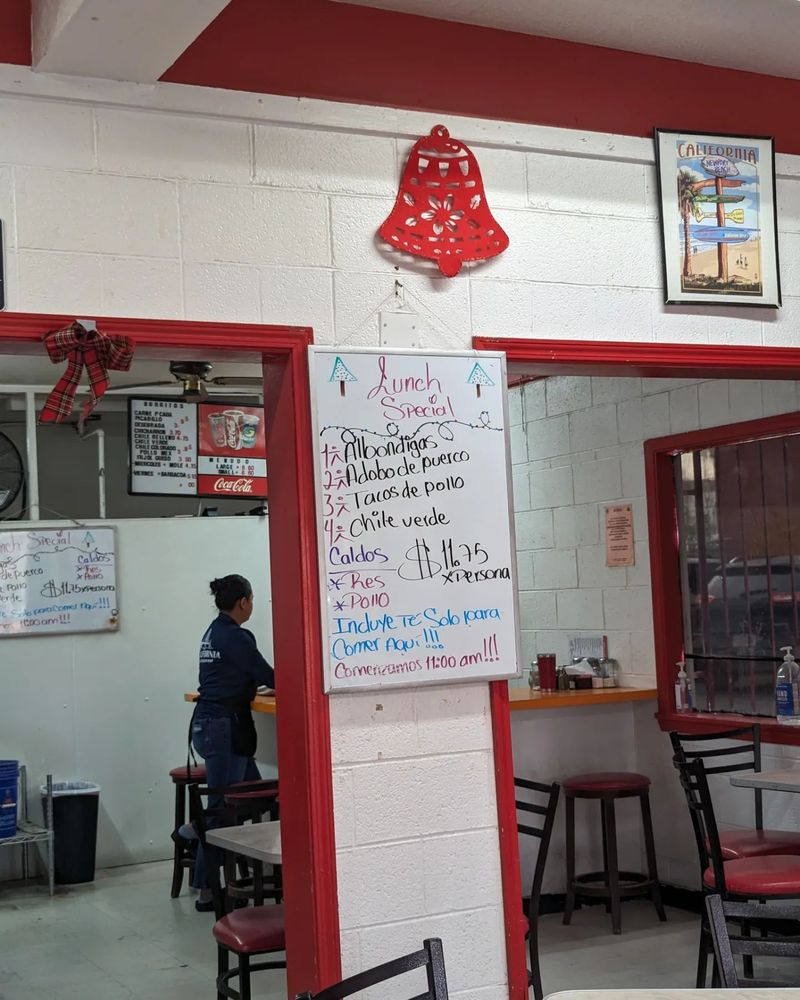 CALIFORNIA
NEWPORT
BEACH
Lunch
Special
1 Albondigas
2 Adobo de puerco
3 Tacos de pollo
4 Chile verde
Caldos
* Res
* Pollo
$11.75
x Persona
Incluye Té Solo para
Comer Aquí!!!
Comenzamos 11:00 am!!!
BURRITOS
CARNE
PICADILLO
DESEBRADA
CHICHARRON
CHILE RELLENO
CHILE VERDE
CHILE COLORADO
POLLO MEX
FRIJOL QUESO
MIERCOLES = MOLE
VIERNES = BARBACOA
MENUDO
LARGE
SMALL
Coca-Cola
Lunch Special
Caldos
* Res
* Pollo
$11.75 x persona
Solo para Comer Aquí!!!
11:00 am!!!